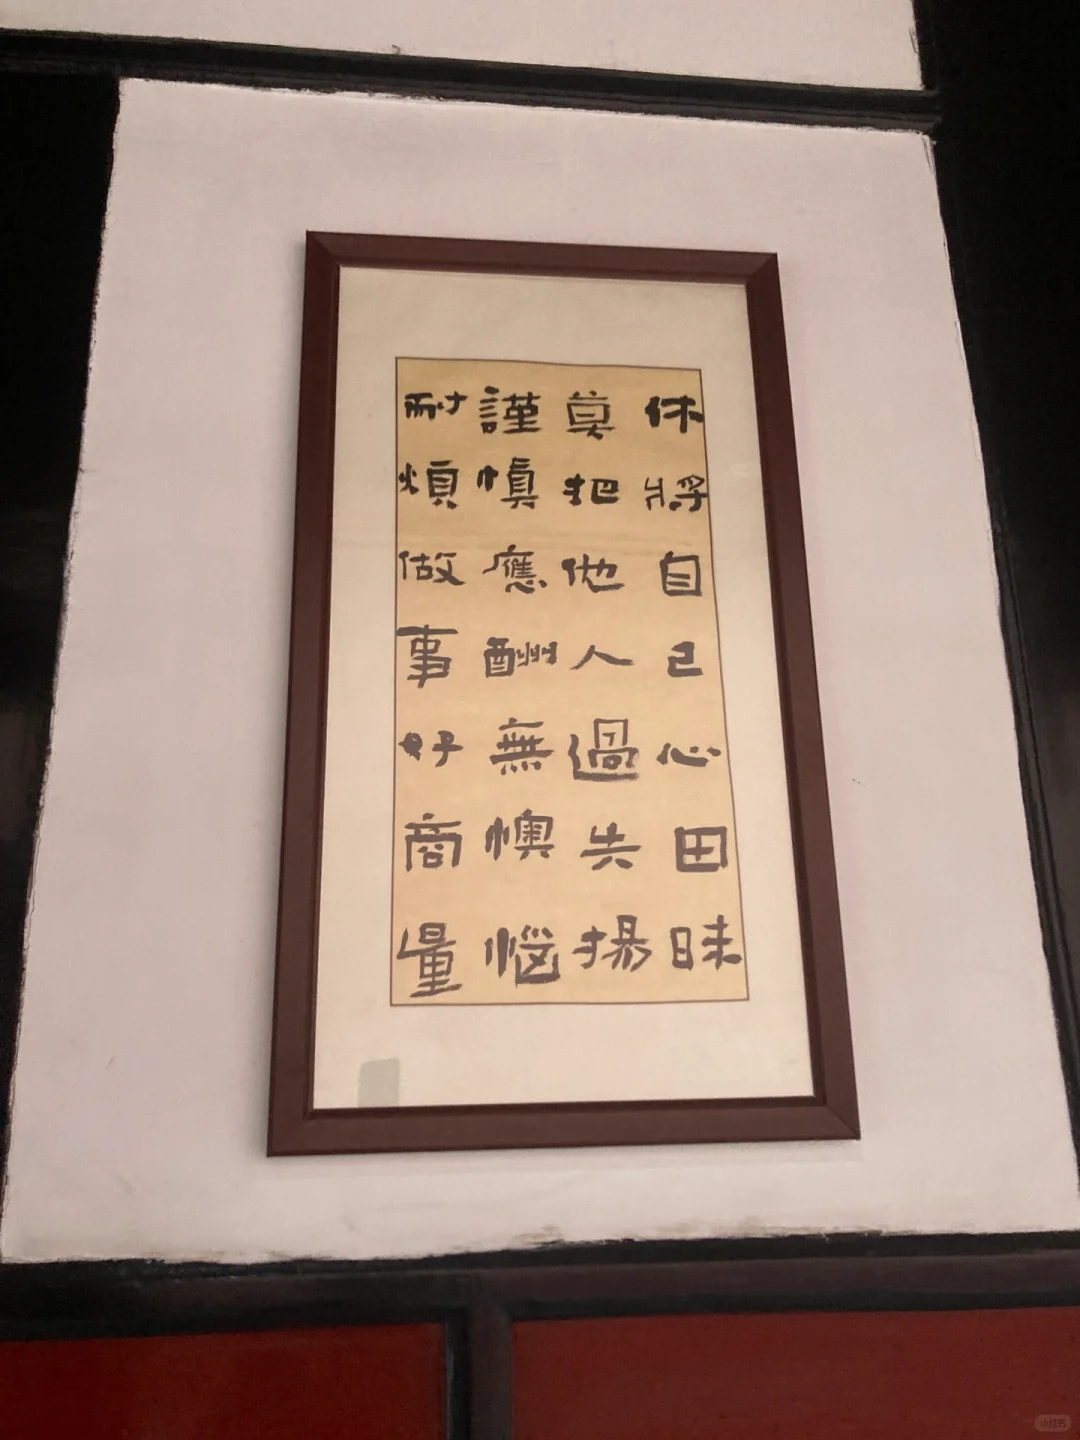 休將自己心田昧
莫把他人過失揚
謹慎應酬無懊惱
耐煩做事好商量
小红书